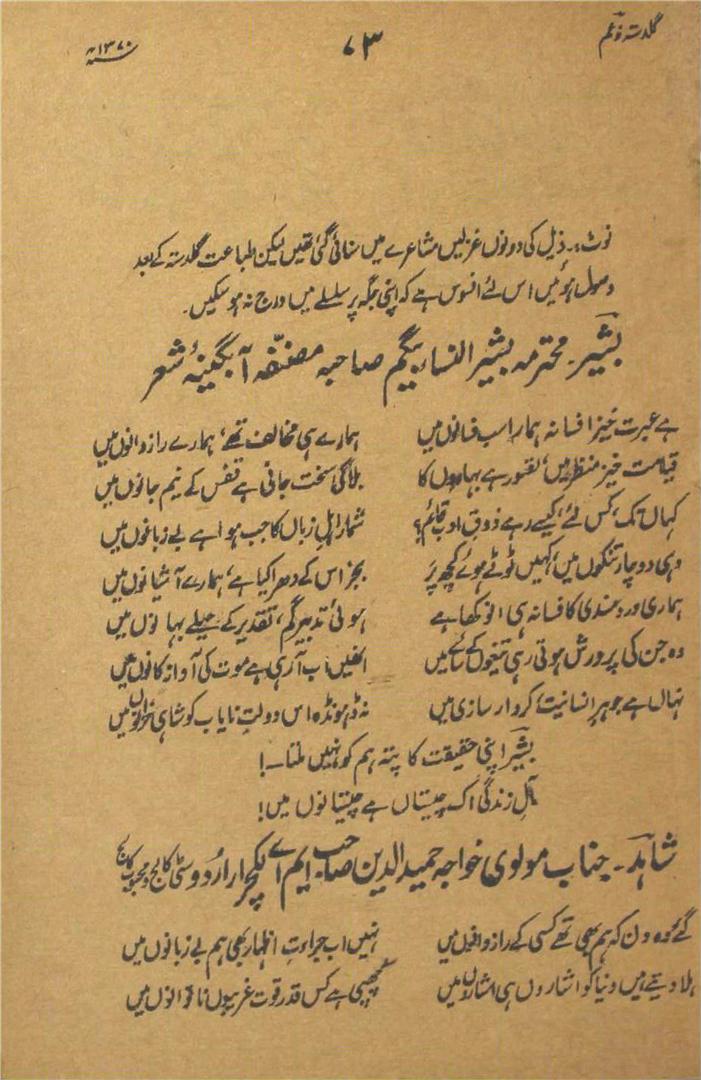 گلدستہ قوئم
۷۳
۱۳۷۰ھ
نوٹ:۔ ذیل کی دونوں غزلیں مشاعرے میں سنائی گئی تھیں لیکن طباعت گلدستہ کے بعد
وصول ہوئیں اس لئے افسوس ہے کہ اپنی جگہ پر سلسلے میں درج نہ ہو سکیں۔
بشیر۔ محترمہ بشیر النساء بیگم صاحبہ مصنفہ آبگینۂ شعر
ہے عبرت خیز افسانہ ہمارا سب فسانوں میں ہمارے ہی مخالف تھے، ہمارے رازدانوں میں
قیامت خیز منظر ہیں، تصور ہے بہاروں کا بلا کی سخت جانی ہے قفس کے نیم جانوں میں
کہاں تک، کس لئے، کیسے رہے ذوق ادب قائم؟ شمار اہلِ زباں کا جب ہوا ہے بے زبانوں میں
وہی دو چار تنکوں میں، کہیں ٹوٹے ہوئے کچھ پر بجز اس کے دھرا کیا ہے، ہمارے آشیانوں میں
ہماری درد مندی کا فسانہ ہی انوکھا ہے ہوئی تدبیر گم، تقدیر کے حیلے بہانوں میں
وہ جن کی پرورش ہوتی رہی تیغوں کے سائے میں انھیں اب آ رہی ہے موت کی آواز کانوں میں
نہاں ہے جوہر انسانیت، کردار سازی میں نہ ڈھونڈہ اس دولتِ نایاب کو شاہی خزانوں میں
بشیر اپنی حقیقت کا پتہ ہم کو نہیں ملتا۔!
مآلِ زندگی اک چیستاں ہے چیستانوں میں!
شاہد۔ جناب مولوی خواجہ حمید الدین صاحب ایم اے لکچرار اردو سٹی کالج و محبوب کالج
گئے وہ دن کہ ہم بھی تھے کسی کے رازدانوں میں نہیں اب جراءتِ اظہار بھی ہم بے زبانوں میں
ہلا دیتے ہیں دنیا کو اشاروں ہی اشاروں میں چھپی ہے کس قدر قوت غریبوں ناتوانوں میں